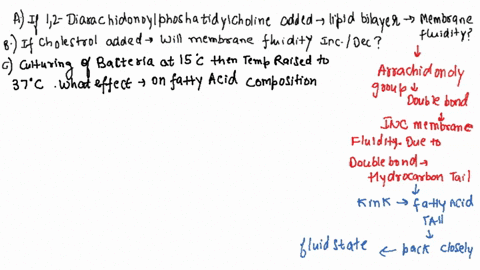 A) If 1,2-Diarachidonoylphoshatidylcholine added → lipid bilayer → Membrane fluidity?
B.) If Cholestrol added → Will membrane fluidity Inc./Dec?
C) Culturing of Bacteria at 15°c then Temp Raised to
37°C. What effect → on fatty Acid Composition
Arrachidonoly
group ↓
Double bond
↓
INC membrane
Fluidity. Due to
Double bond →
Hydrocarbon Tail
↓
Kink → fatty Acid
TAIl
↓
fluid state ← pack closely